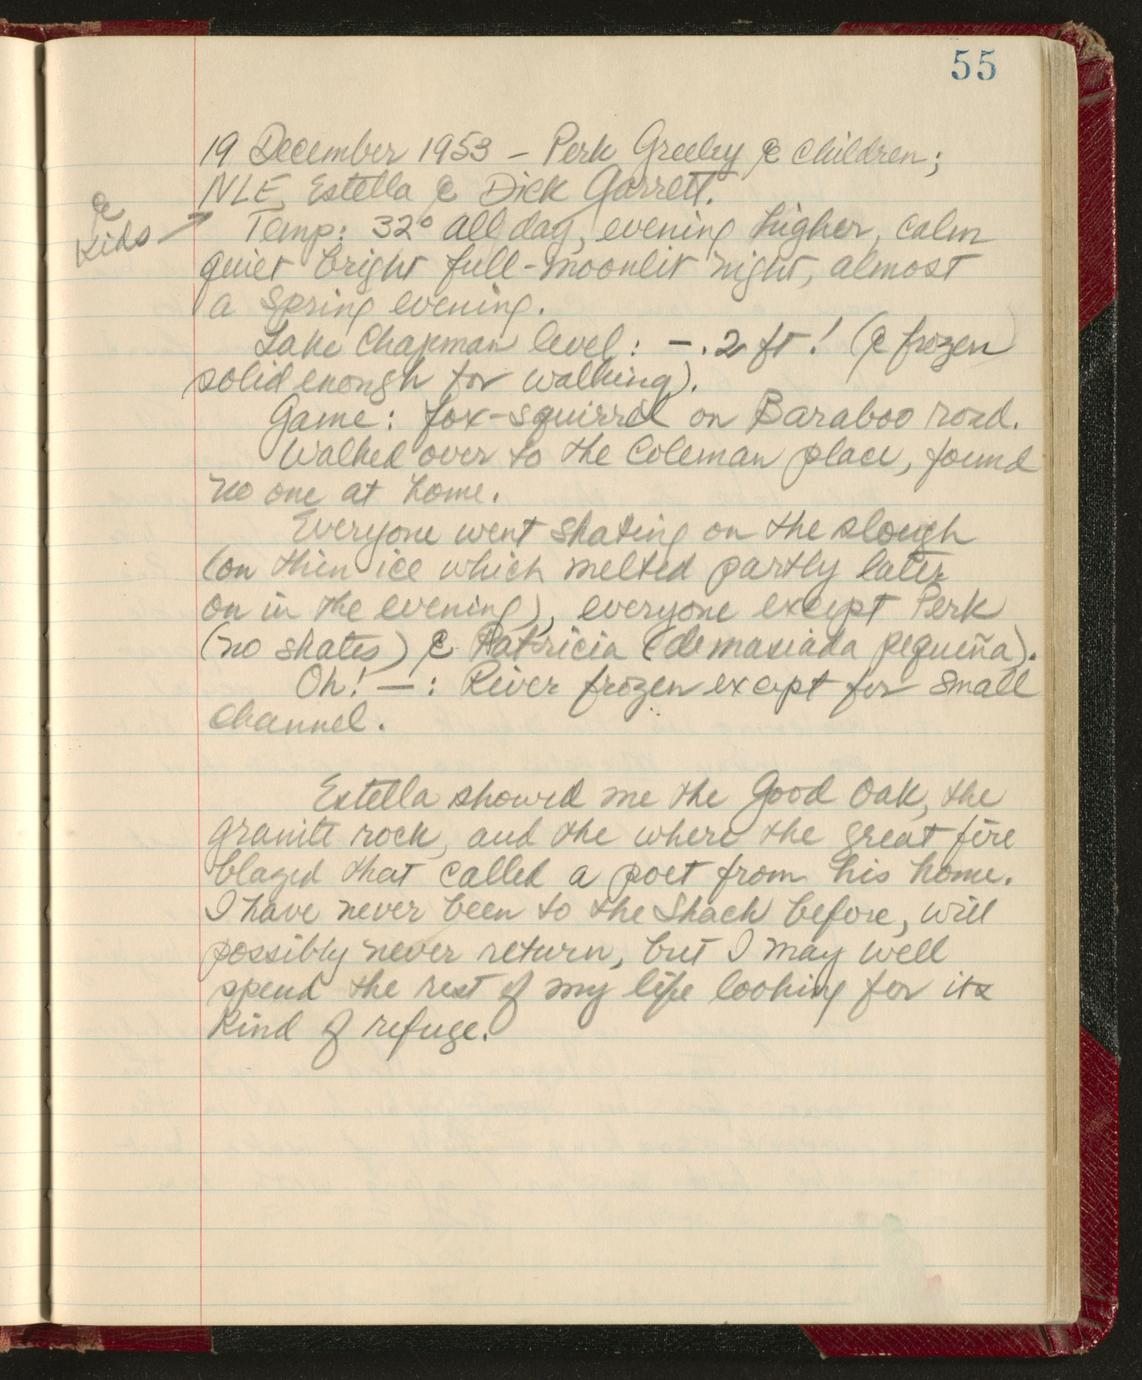 55
19 December 1953 – Perk Greeley & children;
NLE, Estella & Dick Garrett.
&
kids →
Temp: 32° all day, evening higher, calm
quiet bright full-moonlit night, almost
a spring evening.
Lake Chapman level: –.2 ft! (& frozen
solid enough for walking).
Game: fox-squirrel on Baraboo road.
Walked over to the Coleman place, found
no one at home.
Everyone went skating on the slough
(on thin ice which melted partly later
on in the evening), everyone except Perk
(no skates) & Patricia (demasiada pequeña).
Oh! — : River frozen except for small
channel.
Estella showed me the Good Oak, the
granite rock, and the where the great fire
blazed that called a poet from his home.
I have never been to the Shack before, will
possibly never return, but I may well
spend the rest of my life looking for its
kind of refuge.